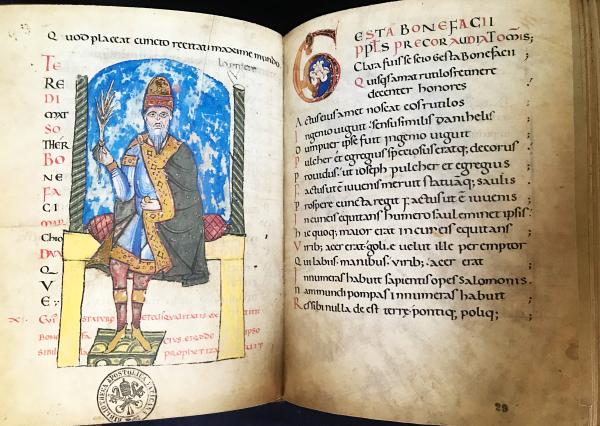 Quod placeat cuncto recitati maxime mundo
TE
RE
DI
MAT
SO
THER
BO
NE
FA
CI
MAR
Chio
DUX
Q
VE
GESTA BONEFACII
PPLS PRECOR AUDIAT OMIS;
Clara fuisse scio gesta Bonefacii ;
Quisq; amat rutilos retinere
decenter honores
Actus eius amet noscat eos rutilos
Ingenio uiguit sensu similis Danihelis
ompuer ipse fuit ingenio uiguit
Pulcher et egregius speciosus eratq; decorus
Prouidus ut ioseph pulcher et egregius
Factus ut e iuuenis meruit statuāq; saulis
Prospere cuncta regit factus ut e iuuenis
In cuneis equitans humero saul eminet ipsis
He quoq; maior erat in cuneis equitans
Virib; acer erat golie velut ille peremptor
Quilabus manibus Virib; acer erat
Innumeras habuit sapientis opes Salomonis
n ammundi pompas innumeras habuit
Ressibi nulla deest terre pontiq; poliq;
BIBLIOTHECA APOSTOLICA VATICANA
29